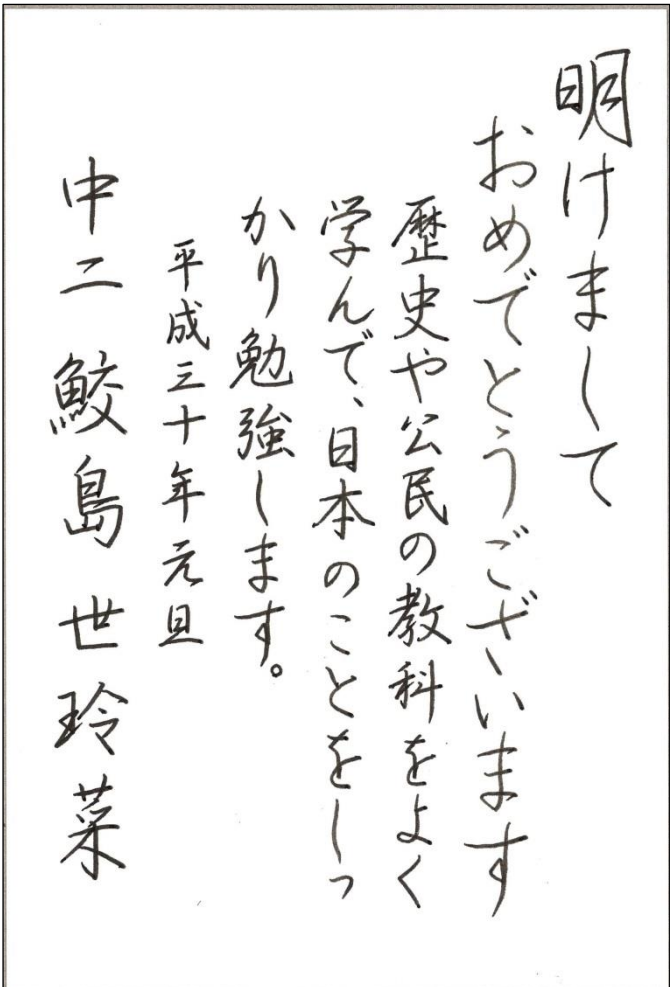 明けまして
おめでとうございます
歴史や公民の教科をよく
学んで、日本のことをしっ
かり勉強します。
平成三十年元旦
中二 鮫島世玲菜